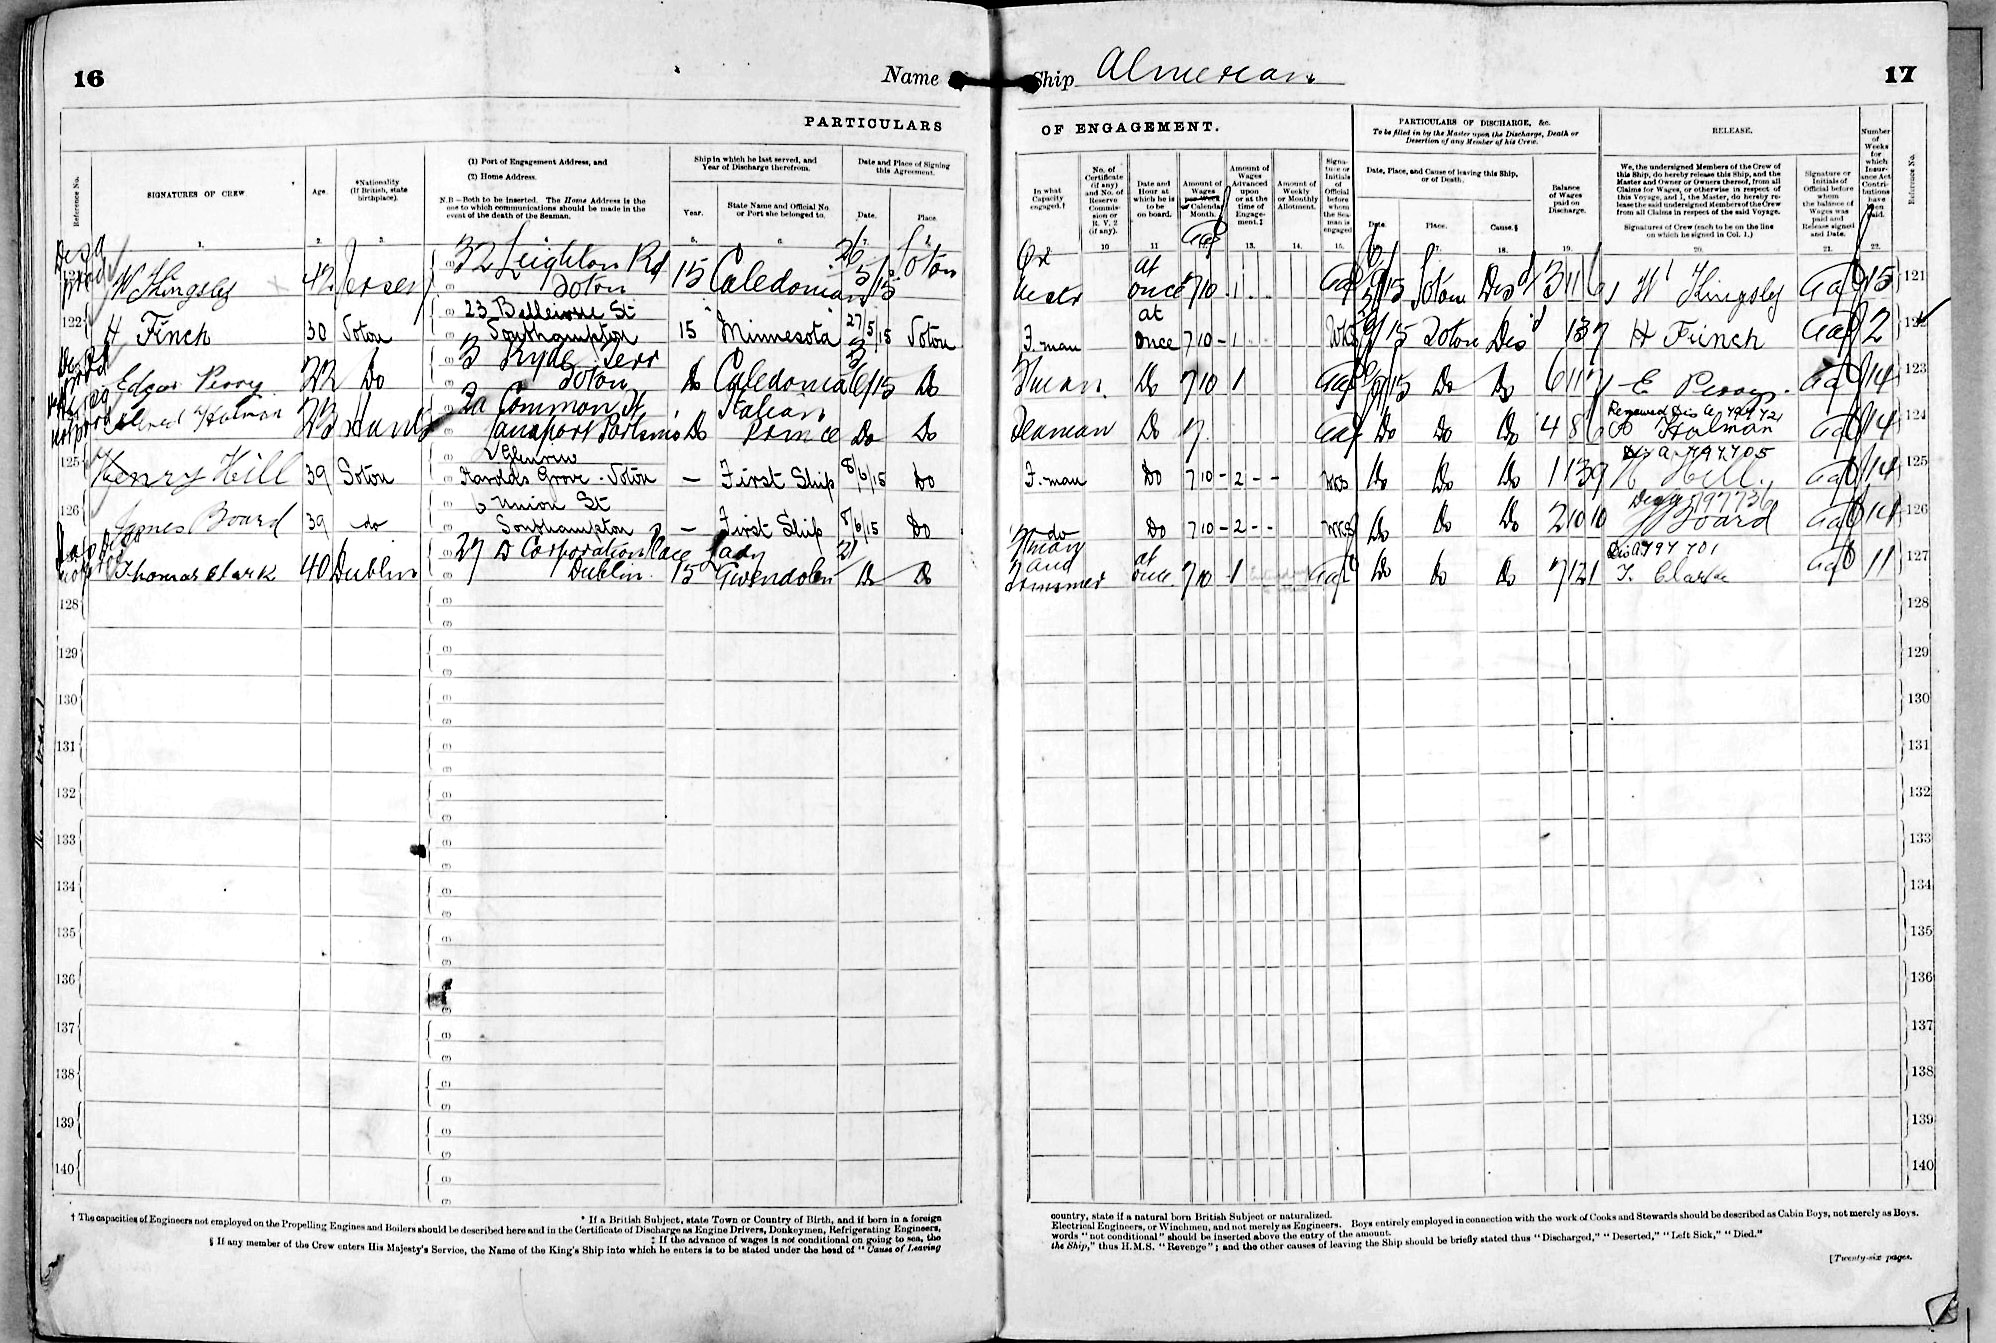 16
Name
Ship Almerian
17
PARTICULARS
OF ENGAGEMENT.
Reference No.
SIGNATURES OF CREW
1.
Age.
2.
*Nationality
(If British, state
birthplace).
3.
(1) Port of Engagement Address, and
(2) Home Address.
N.B—Both to be inserted. The Home Address is the
one to which communications should be made in the
event of the death of the Seaman.
Ship in which he last served, and
Year of Discharge therefrom.
Year.
5.
State Name and Official No.
or Port she belonged to.
6.
Date and Place of Signing
this Agreement.
Date.
7.
Place.
In what
Capacity
engaged.†
No. of
Certificate
(if any)
and No. of
Reserve
Commis-
sion or
R. V. 2
(if any).
10
Date and
Hour at
which he is
to be
on board.
11
Amount of
Wages
per Week
or Calendar
Month.
Amount of
Wages
Advanced
upon
or at the
time of
Engage-
ment.‡
13.
Amount of
Weekly
or Monthly
Allotment.
14.
Signa-
ture or
Initials
of
Official
before
whom
the Sea-
man is
engaged
15.
PARTICULARS OF DISCHARGE, &c.
To be filled in by the Master upon the Discharge, Death or
Desertion of any Member of his Crew.
Date, Place, and Cause of leaving this Ship,
or of Death.
Date.
Place.
17.
Cause.§
18.
Balance
of Wages
paid on
Discharge.
19.
RELEASE.
We, the undersigned Members of the Crew of
this Ship, do hereby release this Ship, and the
Master and Owner or Owners thereof, from all
Claims for Wages, or otherwise in respect of
this Voyage, and I, the Master, do hereby re-
lease the said undersigned Members of the Crew
from all Claims in respect of the said Voyage.
Signatures of Crew (each to be on the line
on which he signed in Col. 1.)
20.
Signature or
Initials of
Official before
whom
the balance of
Wages was
paid and
Release signed
and Date.
21.
Number
of
Weeks
for
which
Insur-
ance Act
Contri-
butions
have
been
paid.
22.
Reference No.
W Kingsley 42 Jersey 32 Leighton Rd Soton 15 Caledonian 26/5/15 Soton
at once 7 10 1 Soton Disd 3 11 W Kingsley 15 121
122 H Finch 30 Soton 23 Bellevue St Southampton 15 Minnesota 27/5/15 Soton
F. man at once 7 10 - 1 Soton Disd H Finch 2
Edgar Perry 22 Do 3 Ryde Terr Soton Do Caledonia Do
Do 7 10 1 Do Do E Perry 14 123
Alfred Holman 23 Hants 2a Common St Do Italian Prince Do Do
Seaman Do 7 Do Do Do 4 8 Holman 14 124
125 Henry Hill 39 Soton Glenview Harolds Grove. Soton — First Ship 8/6/15 Do
F. man Do 7 10 - 2 - - Do Do Do 1 13 9 H Hill. Dis A 797705 14 125
126 James Board 39 do 6 Union St Southampton — First Ship 8/6/15 Do
do Do 7 10 - 2 - - Do Do Do 2 10 10 J Board 14 126
Thomas Clark 40 Dublin 27 D Corporation Place Dublin. 15 Lady Gwendolen Do Do
Fman and Trimmer at once 7 10 1 Do Do Do 7 12 1 Dis A797701 T. Clarke 11 127
128 128
129 129
130 130
131 131
132 132
133 133
134 134
135 135
136 136
137 137
138 138
139 139
140 140
* If a British Subject, state Town or Country of Birth, and if born in a foreign
† The capacities of Engineers not employed on the Propelling Engines and Boilers should be described here and in the Certificate of Discharge as Engine Drivers, Donkeymen, Refrigerating Engineers,
‡ If the advance of wages is not conditional on going to sea, the
§ If any member of the Crew enters His Majesty's Service, the Name of the King's Ship into which he enters is to be stated under the head of "Cause of Leaving
country, state if a natural born British Subject or naturalized.
Electrical Engineers, or Winchmen, and not merely as Engineers. Boys entirely employed in connection with the work of Cooks and Stewards should be described as Cabin Boys, not merely as Boys.
words "not conditional" should be inserted above the entry of the amount.
the Ship," thus H.M.S. "Revenge"; and the other causes of leaving the Ship should be briefly stated thus "Discharged," "Deserted," "Left Sick," "Died."
[Twenty-six pages.